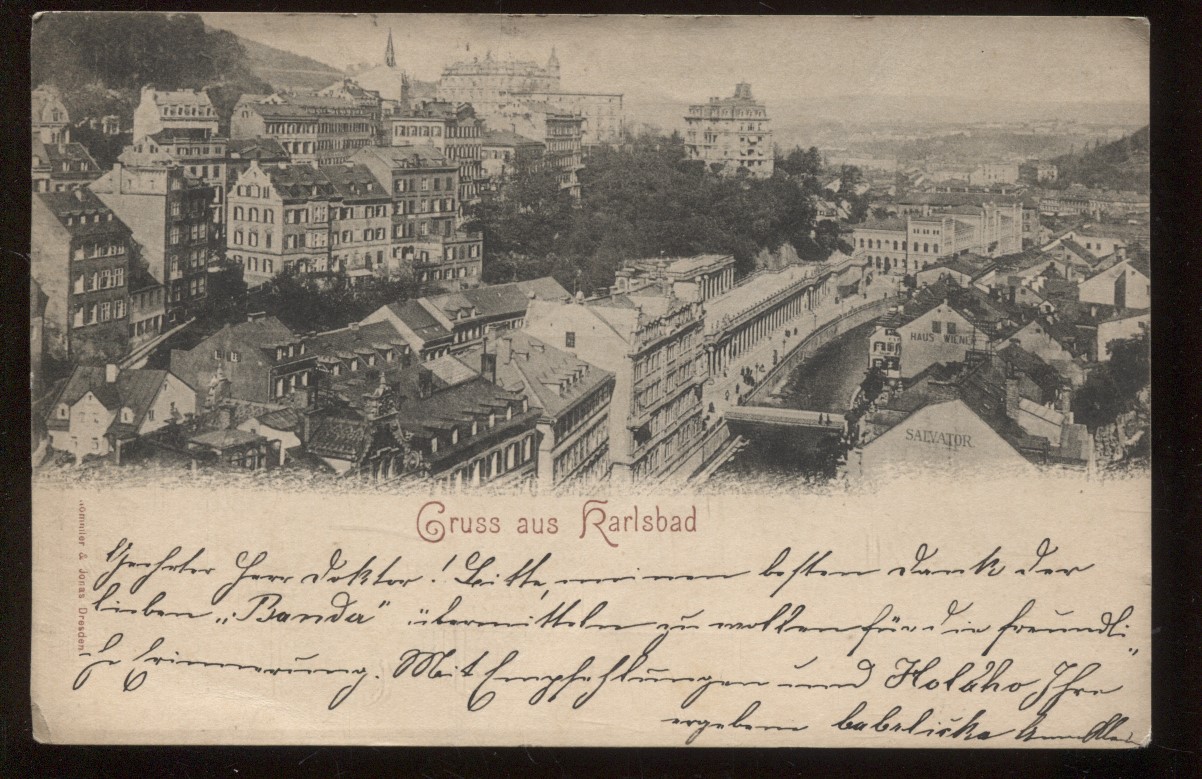 HAUS WIENER
SALVATOR.
Gruss aus Karlsbad
Römmler & Jonas Dresden
Geehrter Herr Doktor! Bitte, meinen besten Dank der
lieben „Banda" übermitteln zu wollen für die freundli„
che Erinnerung. Mit Empfehlungen und Holaho Ihre
ergebene babrlička